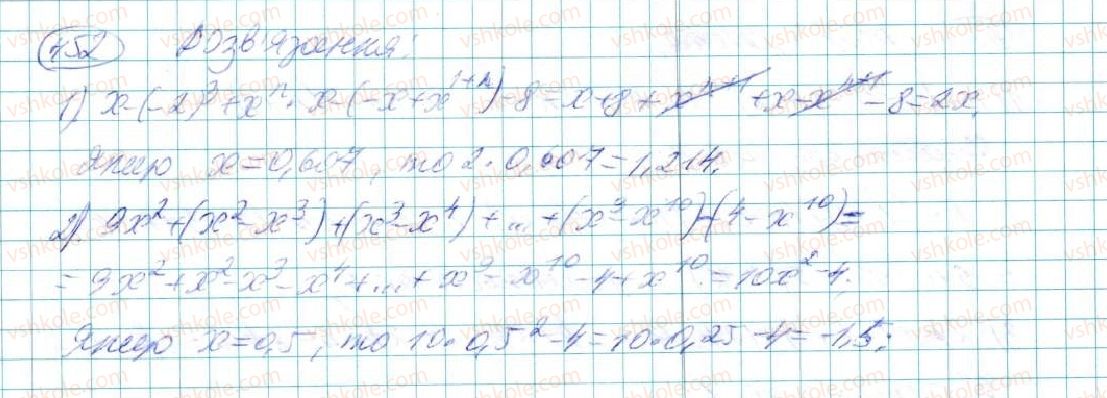 452 Розв'язання:
1) x-(-2)³+xⁿ·x-(-x+x¹⁺ⁿ)-8=x+8+xⁿ⁺¹+x-xⁿ⁺¹-8=2x,
Якщо x=0,607, то 2·0,607=1,214.
2) 9x²+(x²-x³)+(x³-x⁴)+...+(x⁹-x¹⁰)-(4-x¹⁰)=
=9x²+x²-x³-x⁴+...+x⁹-x¹⁰-4+x¹⁰=10x²-4.
Якщо x=0,5, то 10·0,5²-4=10·0,25-4=-1,5;